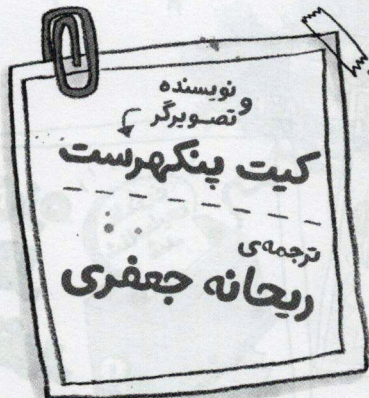 نویسنده
و
تصویرگر
کیت پنکهرست
ترجمه‌ی
ریحانه جعفری